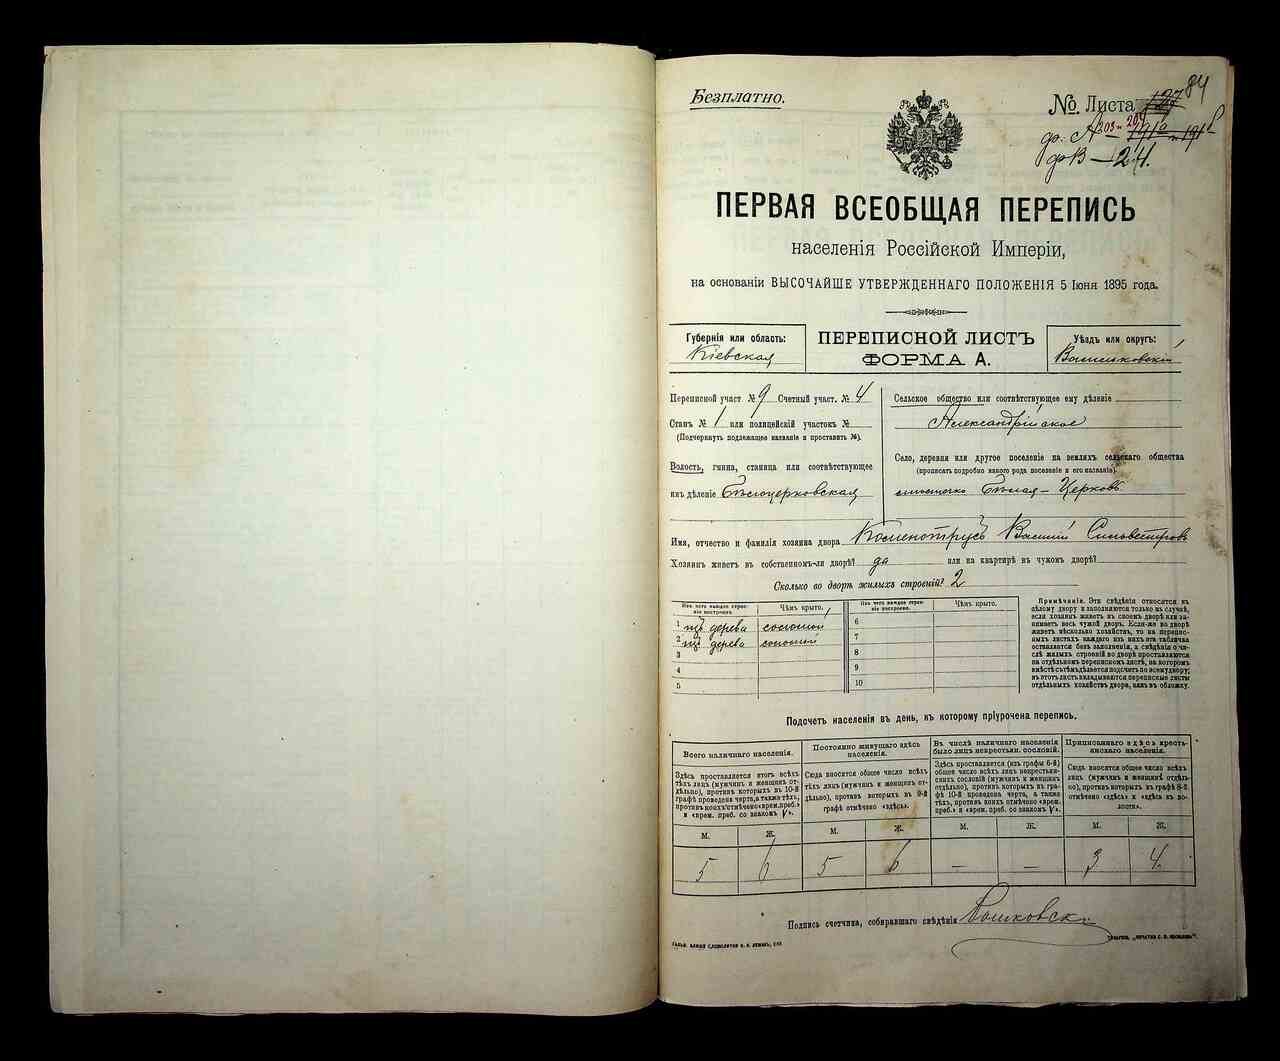 Безплатно.
84
№ Листа
ф. А
ф В — 24.
ПЕРВАЯ ВСЕОБЩАЯ ПЕРЕПИСЬ
населенія Россійской Имперіи,
на основаніи ВЫСОЧАЙШЕ УТВЕРЖДЕННАГО ПОЛОЖЕНІЯ 5 Іюня 1895 года.
Губернія или область:
Кіевская
ПЕРЕПИСНОЙ ЛИСТЪ
ФОРМА А.
Уѣздъ или округъ:
Васильковскій
Переписной участ № 9 Счетный участ. № 4
Станъ № 1 или полицейскій участокъ №
(Подчеркнуть подлежащее названіе и проставить №).
Волость, гмина, станица или соотвѣтствующее
имъ дѣленіе Бѣлоцерковская
Сельское общество или соотвѣтствующее ему дѣленіе
Александрійское
Село, деревня или другое поселеніе на земляхъ сельскаго общества
(прописать подробно какого рода поселеніе и его названіе).
мѣстечко Бѣлая-Церковь
Имя, отчество и фамилія хозяина двора Василій
Хозяинъ живетъ въ собственномъ-ли дворѣ? да или на квартирѣ въ чужомъ дворѣ?
Сколько во дворѣ жилыхъ строеній? 2
Изъ чего каждое строеніе построено.
Чѣмъ крыто.
1 изъ дерева соломой
2 изъ дерева соломой
3
4
5
Изъ чего каждое строеніе построено.
Чѣмъ крыто.
6
7
8
9
10
Примѣчаніе. Эти свѣдѣнія относятся къ
цѣлому двору и заполняются только въ случаѣ,
если хозяинъ живетъ въ своемъ дворѣ или занимаетъ
весь чужой дворъ. Если-же во дворѣ
живетъ нѣсколько хозяйствъ, то на переписныхъ
листахъ каждаго изъ нихъ эта табличка
оставляется безъ заполненія, а свѣдѣнія о числѣ
жилыхъ строеній во дворѣ проставляются
на отдѣльномъ переписномъ листѣ, на которомъ
вмѣстѣ съ тѣмъ дѣлается подсчетъ по всему двору;
въ этотъ листъ вкладываются переписные листы
отдѣльныхъ хозяйствъ двора, какъ въ обложку.
Подсчетъ населенія въ день, къ которому пріурочена перепись.
Всего наличнаго населенія.
Постоянно живущаго здѣсь населенія.
Въ числѣ наличнаго населенія было лицъ некрестьян. сословій.
Приписаннаго здѣсь крестьянскаго населенія.
Здѣсь проставляется итогъ всѣхъ
тѣхъ лицъ (мужчинъ и женщинъ отдѣльно),
противъ которыхъ въ 10-й
графѣ проведена черта, а также тѣхъ,
противъ коихъ отмѣчено «врем. преб.»
и «врем. преб. со знакомъ V».
Сюда вносится общее число всѣхъ
тѣхъ лицъ (мужчинъ и женщинъ отдѣльно),
противъ которыхъ въ 9-й
графѣ отмѣчено «здѣсь».
Здѣсь проставляется (изъ графы 6-й)
общее число всѣхъ лицъ некрестьянскихъ
сословій (мужчинъ и женщинъ
отдѣльно), противъ которыхъ въ графѣ
10-й проведена черта, а также
тѣхъ, противъ коихъ отмѣчено «врем.
преб.» и «врем. преб. со знакомъ V».
Сюда вносится общее число всѣхъ
лицъ (мужчинъ и женщинъ отдѣльно),
противъ которыхъ въ графѣ 8-й
отмѣчено «здѣсь» и «здѣсь въ волости».
М. Ж. М. Ж. М. Ж. М. Ж.
5 6 5 6 — — 3 4
Подпись счетчика, собиравшаго свѣдѣнія